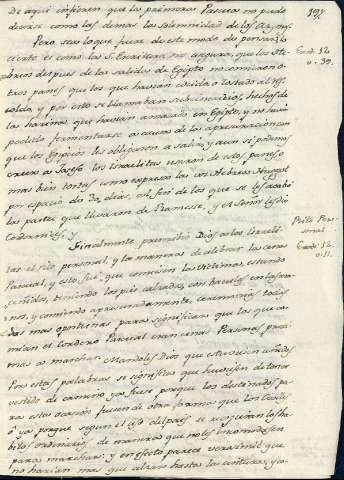 De aqui infieren que la primera Pascua no pudo
decirse como las demas la solemnidad de los Azimos
Pero sea lo que fuere de este modo de pensar, lo
cierto es como la S. Escritura nos asegura, que los He-
breos despues de la salida de Egipto no comieron o-
tros panes que los que havian cocido o tostado al res-
coldo, y por esto se llamaban subcinericios, hechos de
la harina que havian amasado en Egipto, y no havia
podido fermentarse a causa de la apresuracion con
que los Egipcios les obligaron a salir, y aun si podemos
creer a Josefo los Israelitas usaron de estos panes o
mas bien tortas como expresa la voz Hebrea
por espacio de 30 dias, al fin de los que se les acabó
la pasta que llevaron de Ramesse, y el Señor les dio
Codornices, y
Finalmente prescribió Dios a los Israeli-
tas el rito personal, y la manera de celebrar la cena
Pascual, y este fué, que comiesen las Victimas, estando
ceñidos, teniendo los pies calzados, con baculos en las ma-
nos, y comiendo apresuradamente, ceremonias todas
las mas oportunas para significar que los que co-
mian el Cordero Pascual eran unas Personas proxi-
mas a marchar. Mandoles Dios que estuviesen ceñidos
Por estas palabras se significa que huviesen de tener
vestido de camino ya fuese porque los destinados pa-
ra estas ocasion fuesen de otra forma que los
o ya porque segun el uso del país se los ha-
bitos ordinarios de manera que no les incomodasen
para marchar; y en efecto parece verosimil que
no harian mas que alzar hasta la cintura, y
Exod. 12
v. 39.
Rito Per-
sonal
Exod. 12.
v. 11.